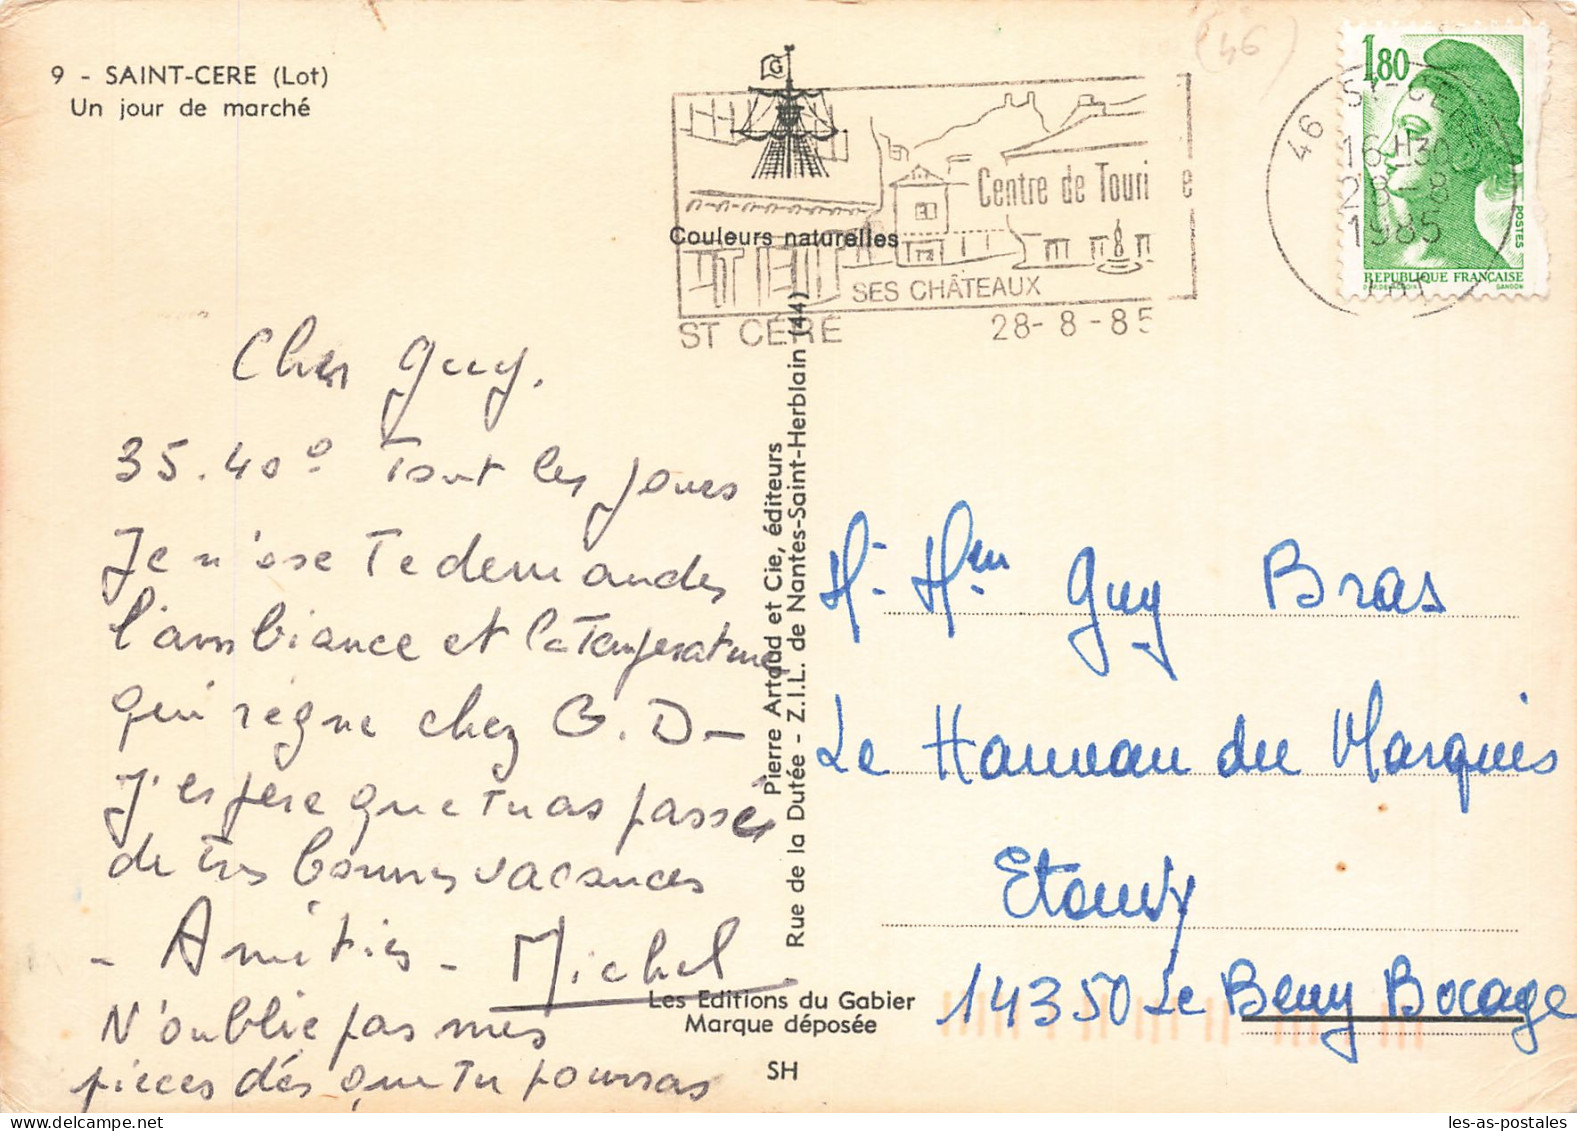 9 - SAINT-CERE (Lot)
Un jour de marché
(46)
G
Centre de Touri e
SES CHÂTEAUX
ST CÉRÉ 28-8-85
Couleurs naturelles
46 ST-CE
16H30
28-8
1985
LOT
1,80
POSTES
REPUBLIQUE FRANÇAISE
GANDON
Cher Guy.
35.40° Tout les jours
Je n'ose te demander
l'ambiance et la température
qui règne chez G.D-
J'espère que tu as passé
de très bonnes vacances
- Amitiés - Michel
N'oublie pas mes
pièces dés que tu pourras
Pierre Artaud et Cie, éditeurs
Rue de la Dutée - Z.I.L. de Nantes-Saint-Herblain (44)
Les Editions du Gabier
Marque déposée
SH
M. Mme Guy Bras
Le Hameau du Marquis
Etouvy
14350 Le Beny Bocage
les-as-postales